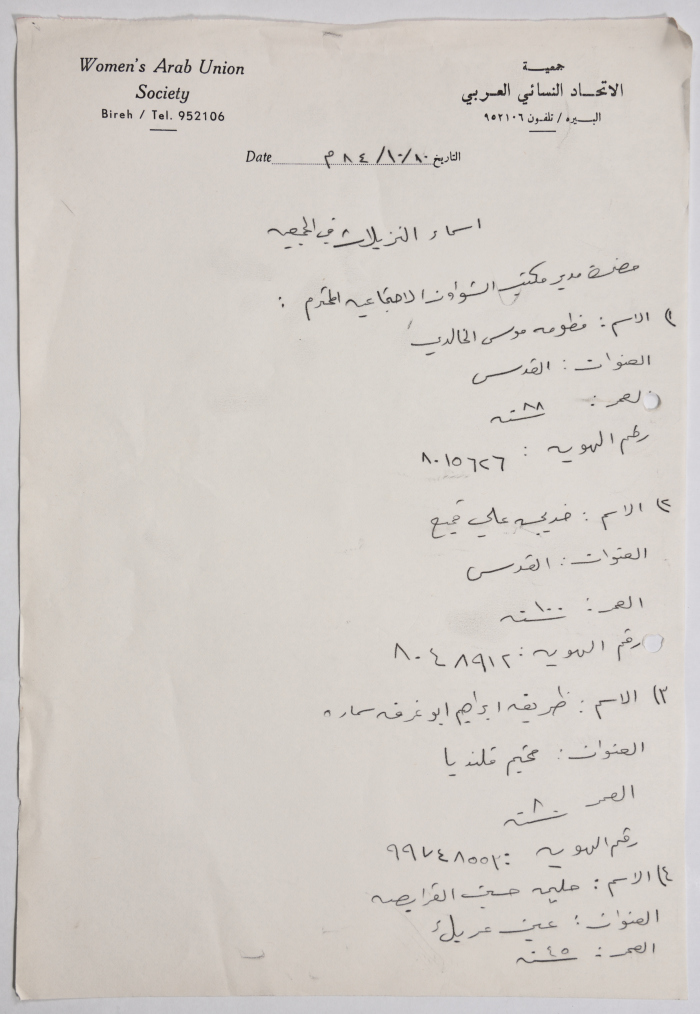 Women's Arab Union
Society
Bireh / Tel. 952106
جمعية
الاتحاد النسائي العربي
البيره / تلفون ٩٥٢١٠٦
Date ٨٤/١٠/٨٠ م التاريخ
اسماء النزيلات في الجمعيه
حضرة مدير مكتب الشؤون الاجتماعيه المحترم :
١) الاسم : فطومه موسى الخالدي
العنوان : القدس
العمر : ٨٨ سنه
رقم الهويه : ٨٠١٥٦٢٦
٢) الاسم : خديجه علي قميع
العنوان : القدس
العمر : ١٠٠ سنه
رقم الهويه : ٨٠٤٨٩١٢
٣) الاسم : ظريفه ابراهيم ابو غرقه سماره
العنوان : مخيم قلنديا
العمر ٨٠ سنه
رقم الهويه : ٩٩٧٤٨٥٥٢
٤) الاسم : حسين
العنوان : عين عريك
العمر : ٤٥ سنه